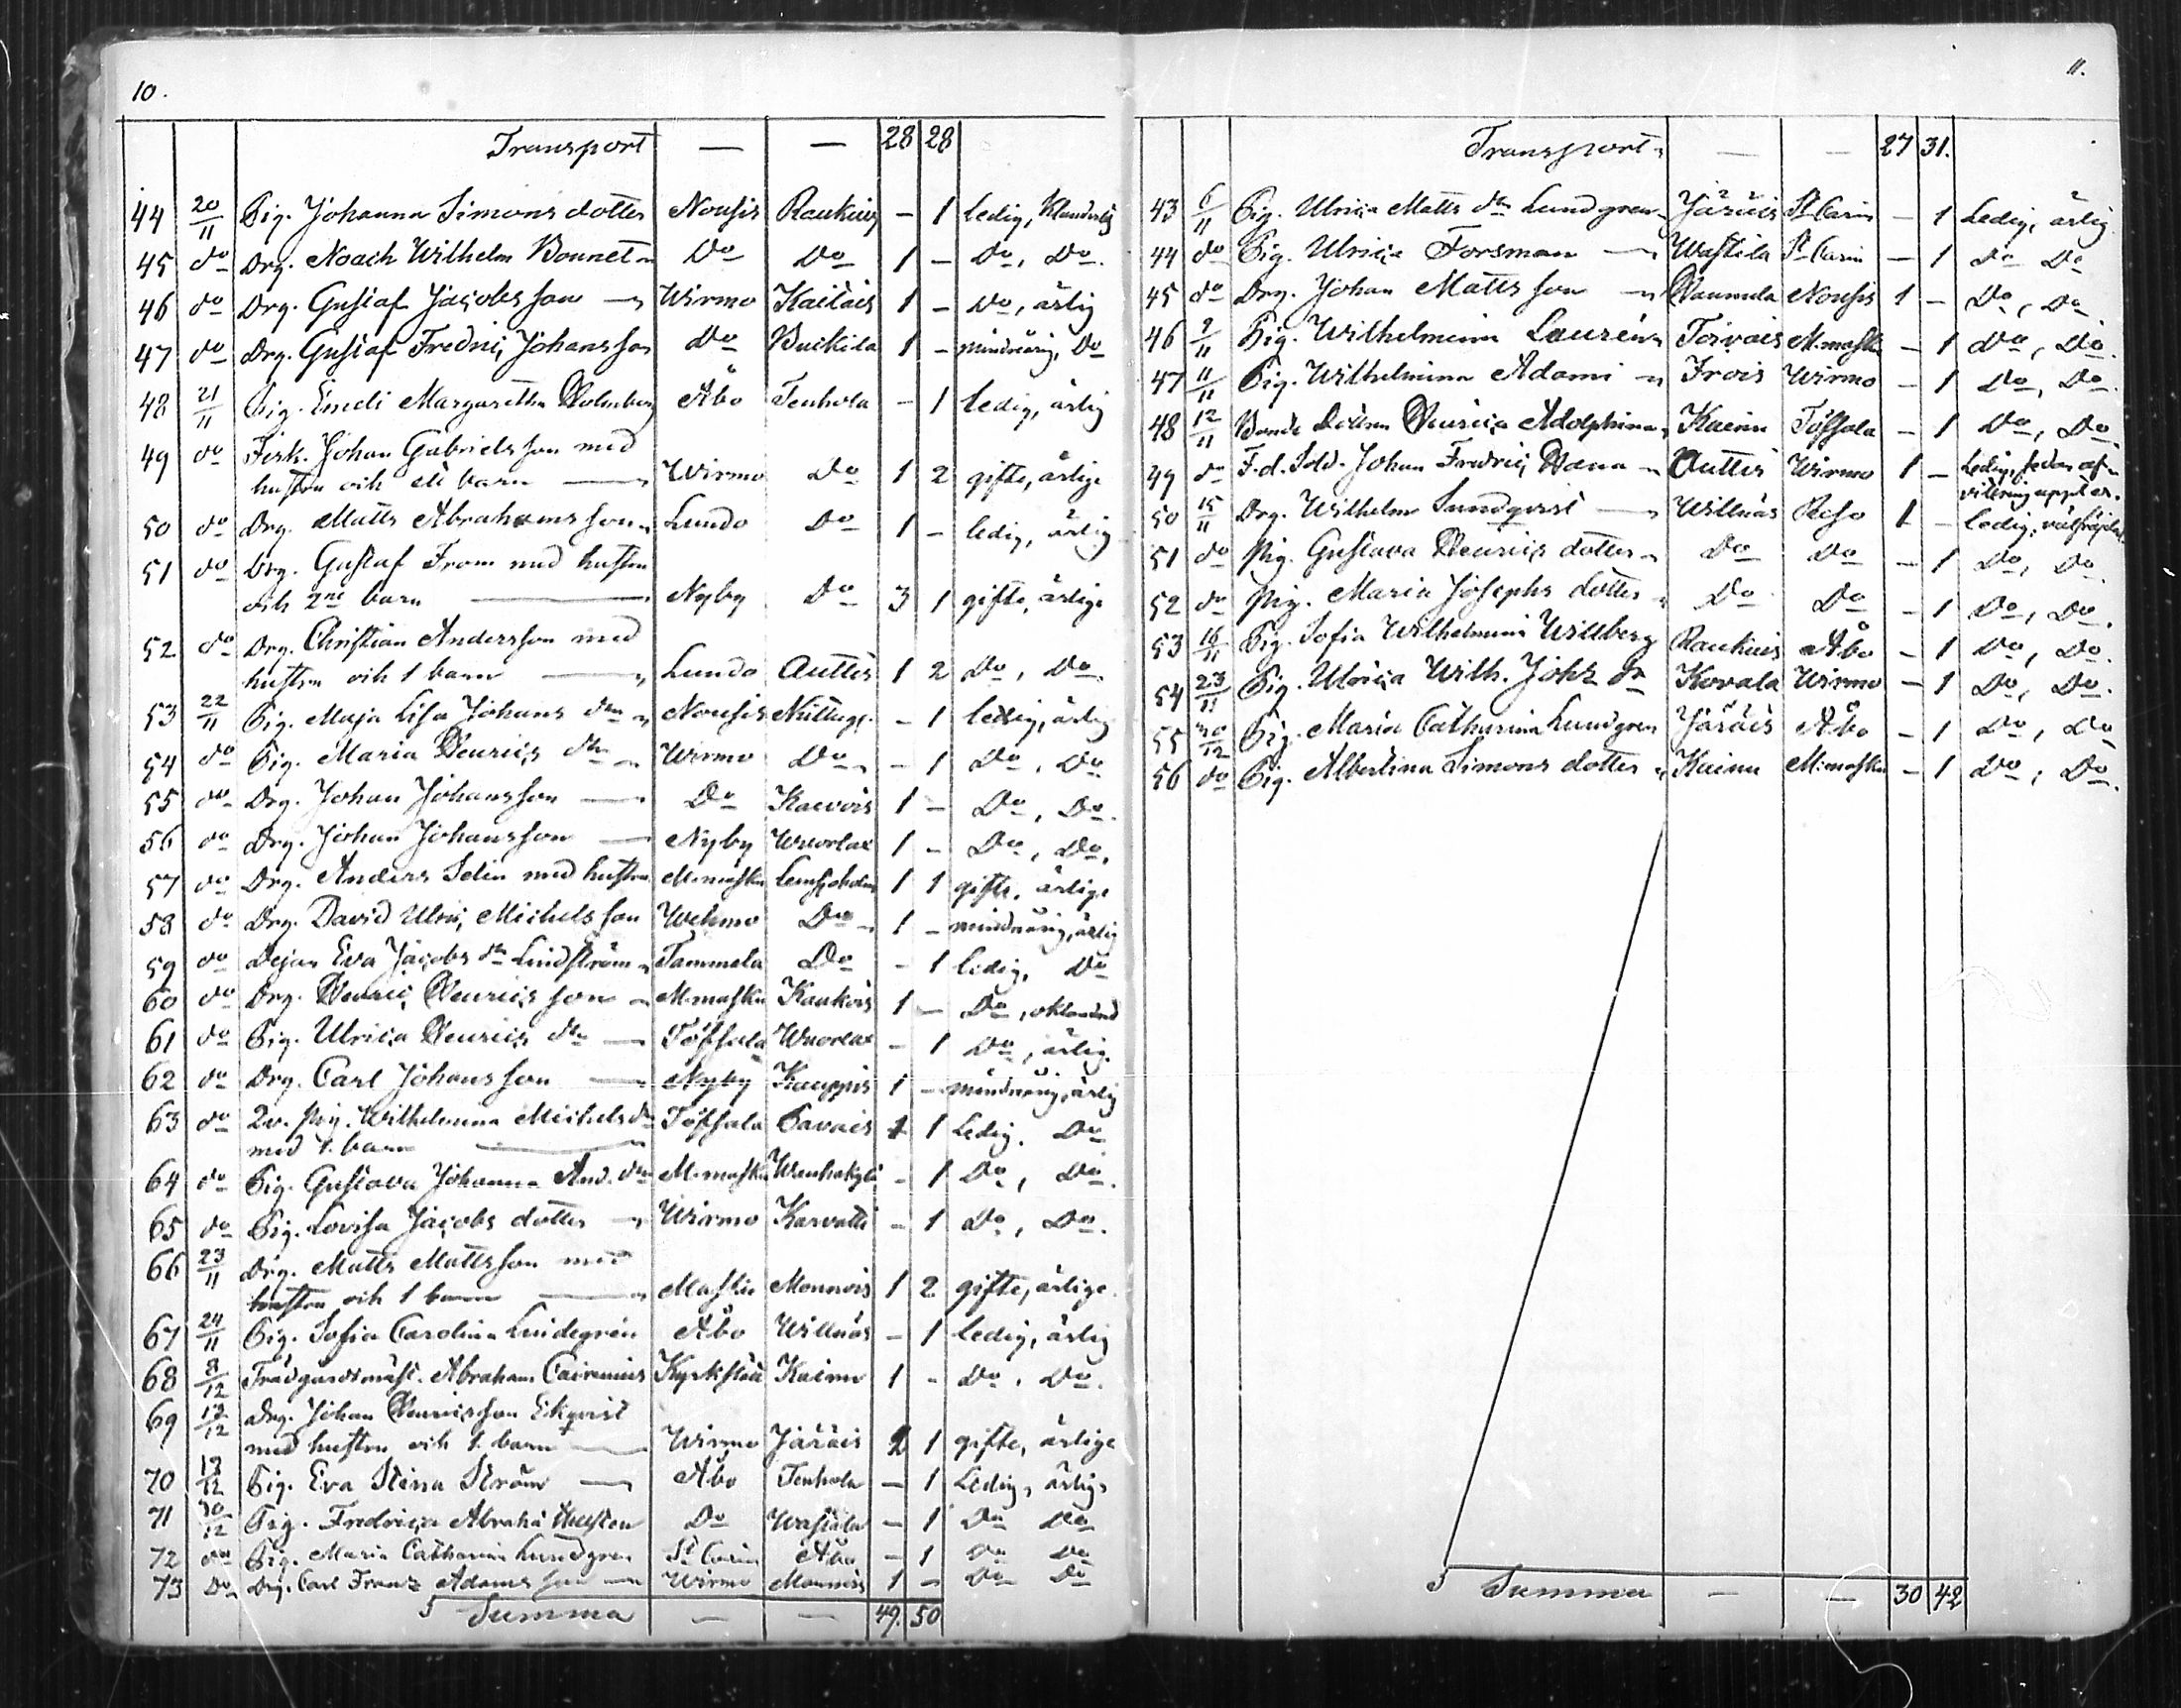 10.
Transport — — 28 28
44 20/11 Pig. Johanna Simons dotter Nousis Raukais – 1 ledig,
45 do Drg. Noach Wilhelm Bonnet Do Do 1 – Do, Do.
46 do Drg. Gustaf Jacobsson Wirmo Kailais 1 – Do, ärlig
47 do Drg. Gustaf Fredric Johansson Do 1 – mindreårig, Do
48 21/11 Pig. Emeli Margaretha Holmberg Åbo Tenhola – 1 ledig, ärlig
49 do Fisk. Johan Gabrielsson med
hustru och ett barn Wirmo Do 1 2 gifte, ärlige
50 do Drg. Matts Abrahamsson Lundo Do 1 – ledig, ärlig
51 do Drg. Gustaf From med hustru
och 2ne barn Nyby Do 3 1 gifte, ärlige
52 do Drg. Christian Andersson med
hustru och 1 barn Lundo Auttis 1 2 Do, Do.
53 22/11 Pig. Maja Lisa Johans dtr Nousis – 1 ledig, ärlig
54 do Pig. Maria Henrics dtr Wirmo Do – 1 Do, Do
55 do Drg. Johan Johansson Do 1 – Do, Do.
56 do Drg. Johan Johansson Nyby Wuorlax 1 – Do, Do.
57 do Drg. Anders Selin med hustru M:masku Lemsjoholm 1 1 gifte, ärlige
58 do Drg. David Ulric Michelsson Wehmo Do 1 – mindreårig, ärlig
59 do Dejan Eva Jacobs dtr Lindström Tammela Do – 1 ledig, Do
60 do Drg. Henric Henricsson M:masku Kaukois 1 – Do, oklandrad
61 do Pig. Ulrica Henrics dtr Töfsala Wuorlax – 1 Do, ärlig.
62 do Drg. Carl Johansson Nyby Kauppis 1 – mindreårig, ärlig
63 do Qv. pig. Wilhelmina Michelsdr Töfsala Pavais 1 1 Ledig. Do
med 1. barn
64 do Pig. Gustava Johanna And. dtr M:masku Wanhakylä – 1 Do, Do.
65 do Pig. Lovisa Jacobs dotter Wirmo Karvatti – 1 Do, Do.
66 23/11 Drg. Matts Mattsson med
hustru och 1 barn Masku Monnois 1 2 gifte, ärlige.
67 24/11 Pig. Sofia Carolina Lindegrén Åbo Willnäs – 1 ledig, ärlig
68 8/12 Trädgårdsmäst. Abraham Cairenius Kyrkstad Kainu 1 – Do, Do.
69 13/12 Drg. Johan Henricsson Ekqvist
med hustru och 1. barn Wirmo Järäis 2 1 gifte, ärlige
70 13/12 Pig. Eva Stina Ström Åbo Tenhola – 1 Ledig, ärlig,
71 30/12 Pig. Fredrica Abrahå Do Wastila – 1 Do Do
72 do Pig. Maria Catharina Lundgren St Carin Åbo – 1 Do Do
73 Do Drg. Carl Franz Adamsson Wirmo Monnois 1 – Do Do
Summa — — 49. 50
11.
Transport — — 27 31.
43 6/11 Pig. Ulrica Matts dtr Lundgren Järäis St Carin – 1 Ledig, ärlig
44 do Pig. Ulrica Forsman Wastila St Carin – 1 Do Do
45 do Drg. Johan Mattsson Nousis 1 – Do, Do
46 9/11 Pig. Wilhelmina Laurén Toivais M:masku – 1 Do, Do.
47 11/11 Pig. Wilhelmina Adami Frois Wirmo – 1 Do, Do.
48 12/11 Bonde dottren Henrica Adolphina Kainu Töfsala – 1 Do, Do
49 do F.d. Sold. Johan Fredric Auttis Wirmo 1 – Ledig,
50 15/11 Drg. Wilhelm Sundqvist Willnäs Reso 1 – ledig, välfrejdad
51 do Pig. Gustava Henrics dotter Do Do – 1 Do, Do
52 do Pig. Maria Josephs dotter Do Do – 1 Do, Do.
53 16/11 Pig. Sofia Wilhelmina Willberg Raukais Åbo – 1 Do, Do.
54 23/11 Pig. Ulrica Wilh. Johs dr Kovala Wirmo – 1 Do, Do.
55 30/12 Pig. Maria Catharina Lundgren Järäis Åbo – 1 Do, Do
56 do Pig. Albertina Simons dotter Kainu M:masku – 1 Do, Do.
Summa — — 30 42